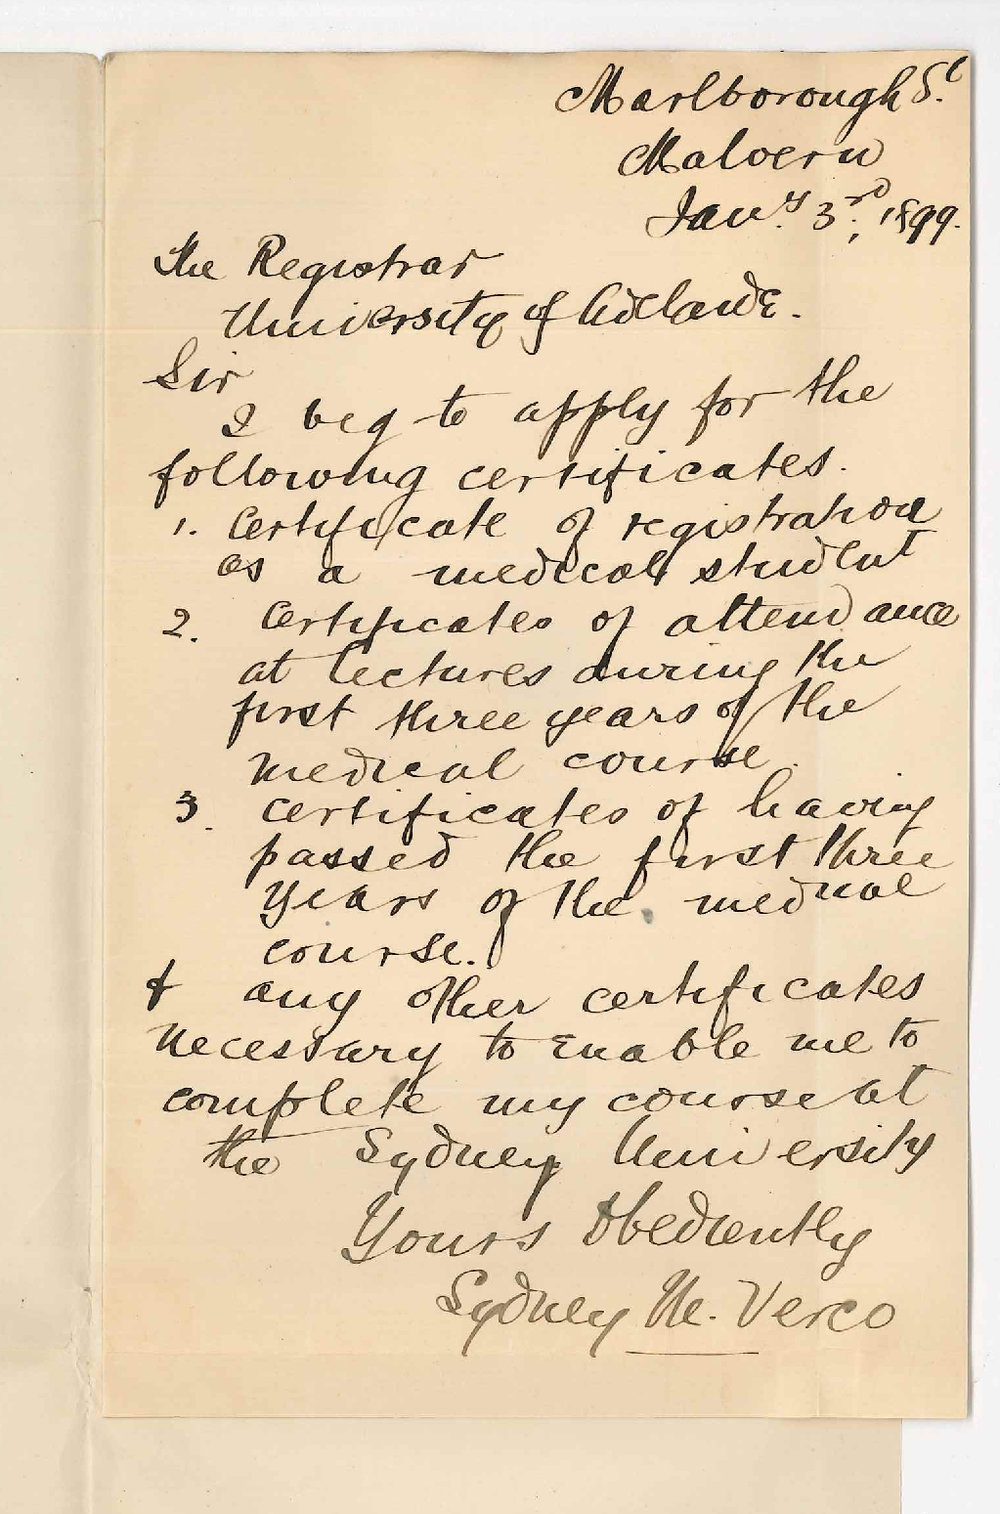 Marlborough St
Malvern
Jany. 3rd, 1899.
The Registrar
University of Adelaide.
Sir
I beg to apply for the
following certificates.
1. Certificate of registration
as a medical student
2. Certificates of attendance
at lectures during the
first three years of the
medical course.
3. certificates of having
passed the first three
years of the medical
course.
& any other certificates
necessary to enable me to
complete my course at
the Sydney University
Yours obediently
Sydney M. Verco